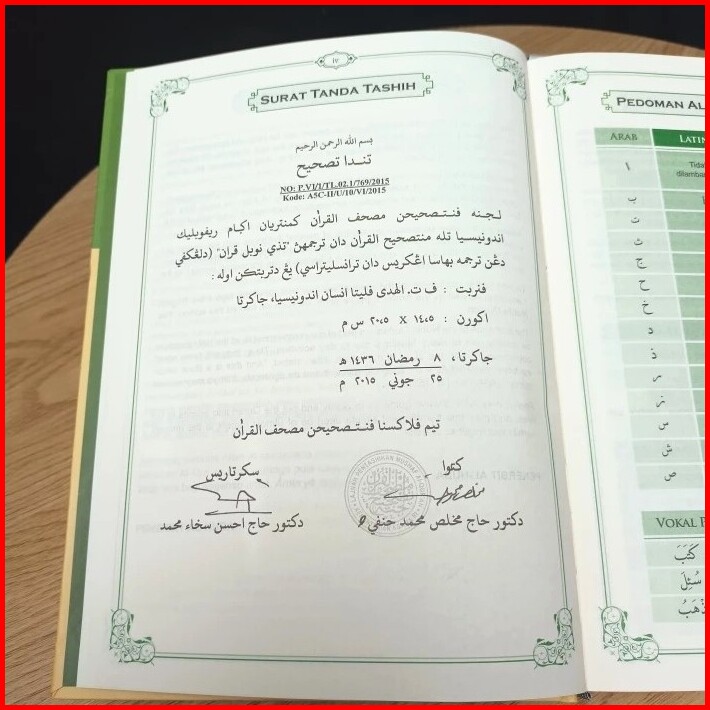 SURAT TANDA TASHIH
بسم الله الرحمن الرحيم
تندا تصحيح
NO: P.VI/I/TL.02.1/769/2015
Kode: A5C-II/U/10/VI/2015
لجنه فنتصحيحن مصحف القرآن كمنتريان اݢام ريفوبليك
اندونيسيا تله منتصحيح القرآن دان ترجمهن "تذي نوبل قران" (دلڠكفي
دڠن ترجمه بهاسا اڠݢريس دان ترانسليتراسي) يڠ دتربتكن اوله :
فنربت : ف ت. الهدى فليتا انسان اندونيسيا، جاكرتا
اكورن : ١٤،٥ X ٢٠،٥ س م
جاكرتا، ٨ رمضان ١٤٣٦ هـ
٢٥ جوني ٢٠١٥ م
تيم فلاكسنا فنتصحيحن مصحف القرآن
كتوا
سكرتاريس
دكتور حاج مخلص محمد حنفي
دكتور حاج احسن سخاء محمد
PEDOMAN AL
ARAB LATIN
ا
Tida
dilamban
ب
ت
ث
ج
ح
خ
د
ذ
ر
ز
س
ش
ص
VOKAL P
كَتَبَ
سُئِلَ